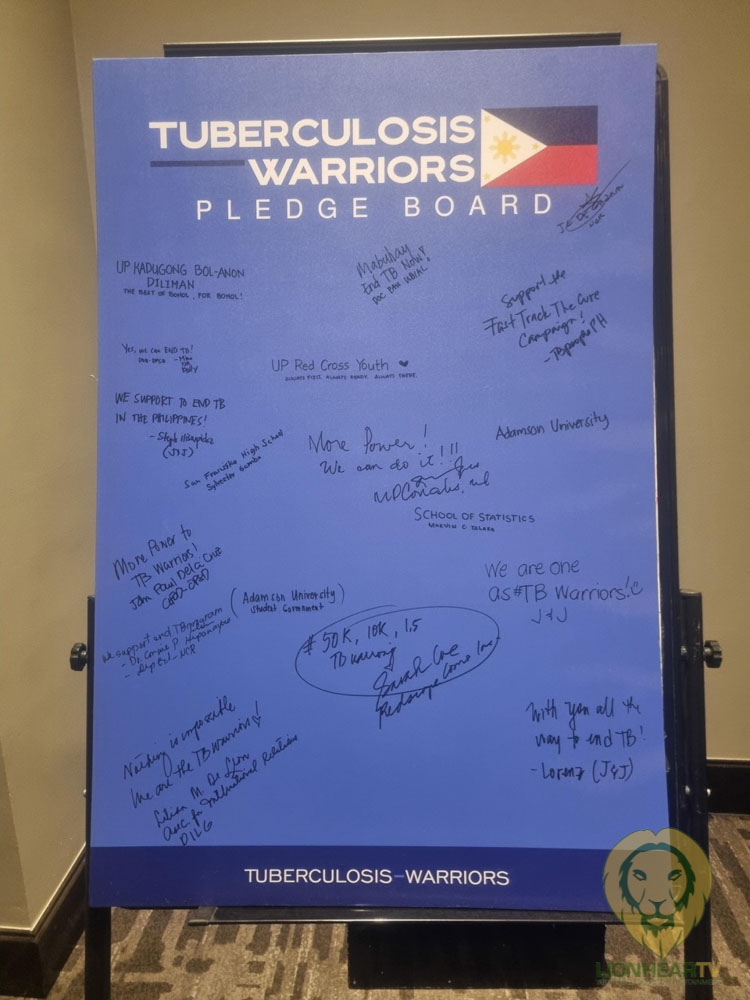 TUBERCULOSIS
WARRIORS
PLEDGE BOARD
UP KADUGONG BOL-ANON
DILIMAN
THE BEST OF BOHOL, FOR BOHOL!
Mabuhay
End TB Now!
DOC
Support the
Fast Track The Cure
Campaign!
- TBpeople PH
Yes, we can END TB!
UP Red Cross Youth
ALWAYS FIRST. ALWAYS READY. ALWAYS THERE.
WE SUPPORT TO END TB
IN THE PHILIPPINES!
- Steph
(J&J)
San Francisco High School
More Power!
We can do it!!!
Adamson University
SCHOOL OF STATISTICS
MARVIN C.
More Power to
TB Warriors!
John Paul Dela Cruz
We are one
as #TB Warriors!
J&J
(Adamson University)
Student Government
We support end TB program
- Dr.
- DepEd - NCR
# 50K, 10K, 1.5
TB warriors
Sarah
Nothing is impossible
We are the TB Warriors!
Lilian M. De Leon
Asec for International Relations
DILG
With you all the
way to end TB!
- Lorenz (J&J)
TUBERCULOSIS-WARRIORS
LIONHEARTV